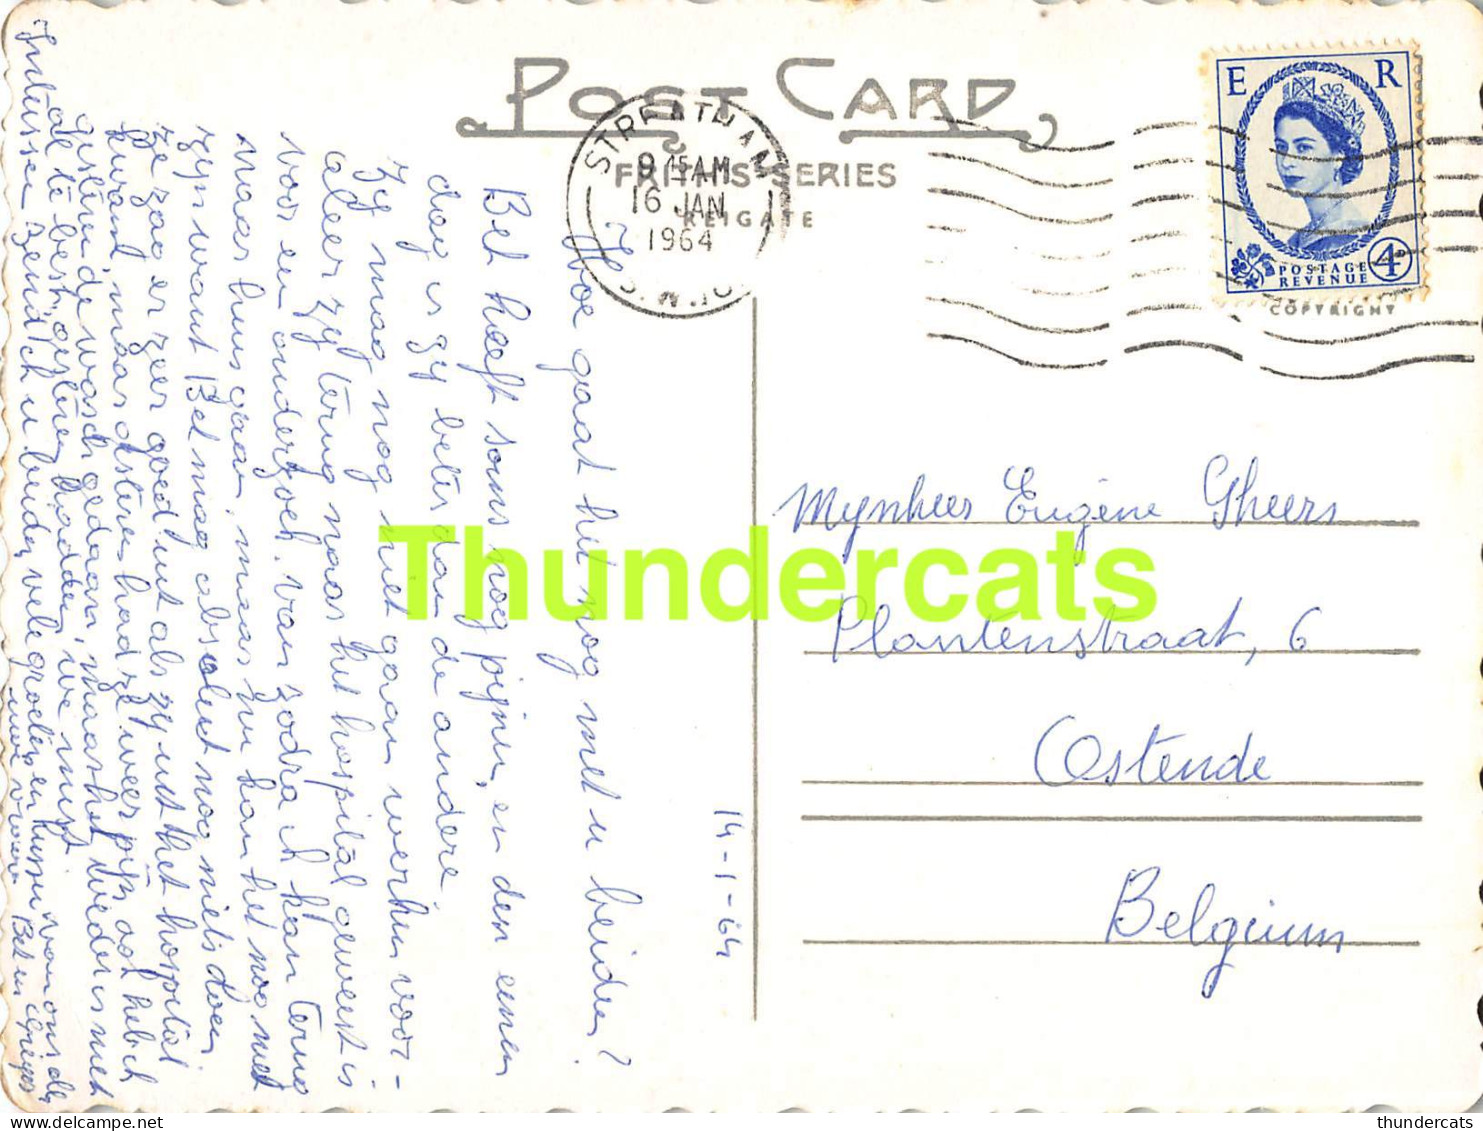 POST CARD
FRITH'S SERIES
REIGATE
STREATHAM
9 15 AM
16 JAN
1964
S.W.
E R
POSTAGE
REVENUE
4D
COPYRIGHT
14-1-64
Hoe gaat het nog met u beiden?
Bet heeft soms nog pijnen, en den eenen
dag is zy beter dan de andere.
Zy mag nog niet gaan werken voor-
aleer zy terug naar het hospital geweest is
voor een onderzoek. van zodra ik kan terug
naar huis gaan, maar nu kan het nog niet
zyn want Bet mag absoluut nog niets doen
ze zag er zeer goed uit als zy uit het hospital
kwam, maar gisteren had ze weer pijn ook heb ik
gisteren de wasch gedaan, maar het weder is niet
al te best, gisteren hadden we mist
Intussen zend ik u beiden vele groeten en kussen van ons allen
uwe vrouw Bet en
Mynheer Eugène Gheers
Plantenstraat, 6
Ostende
Belgium
Thundercats
thundercats
delcampe.net